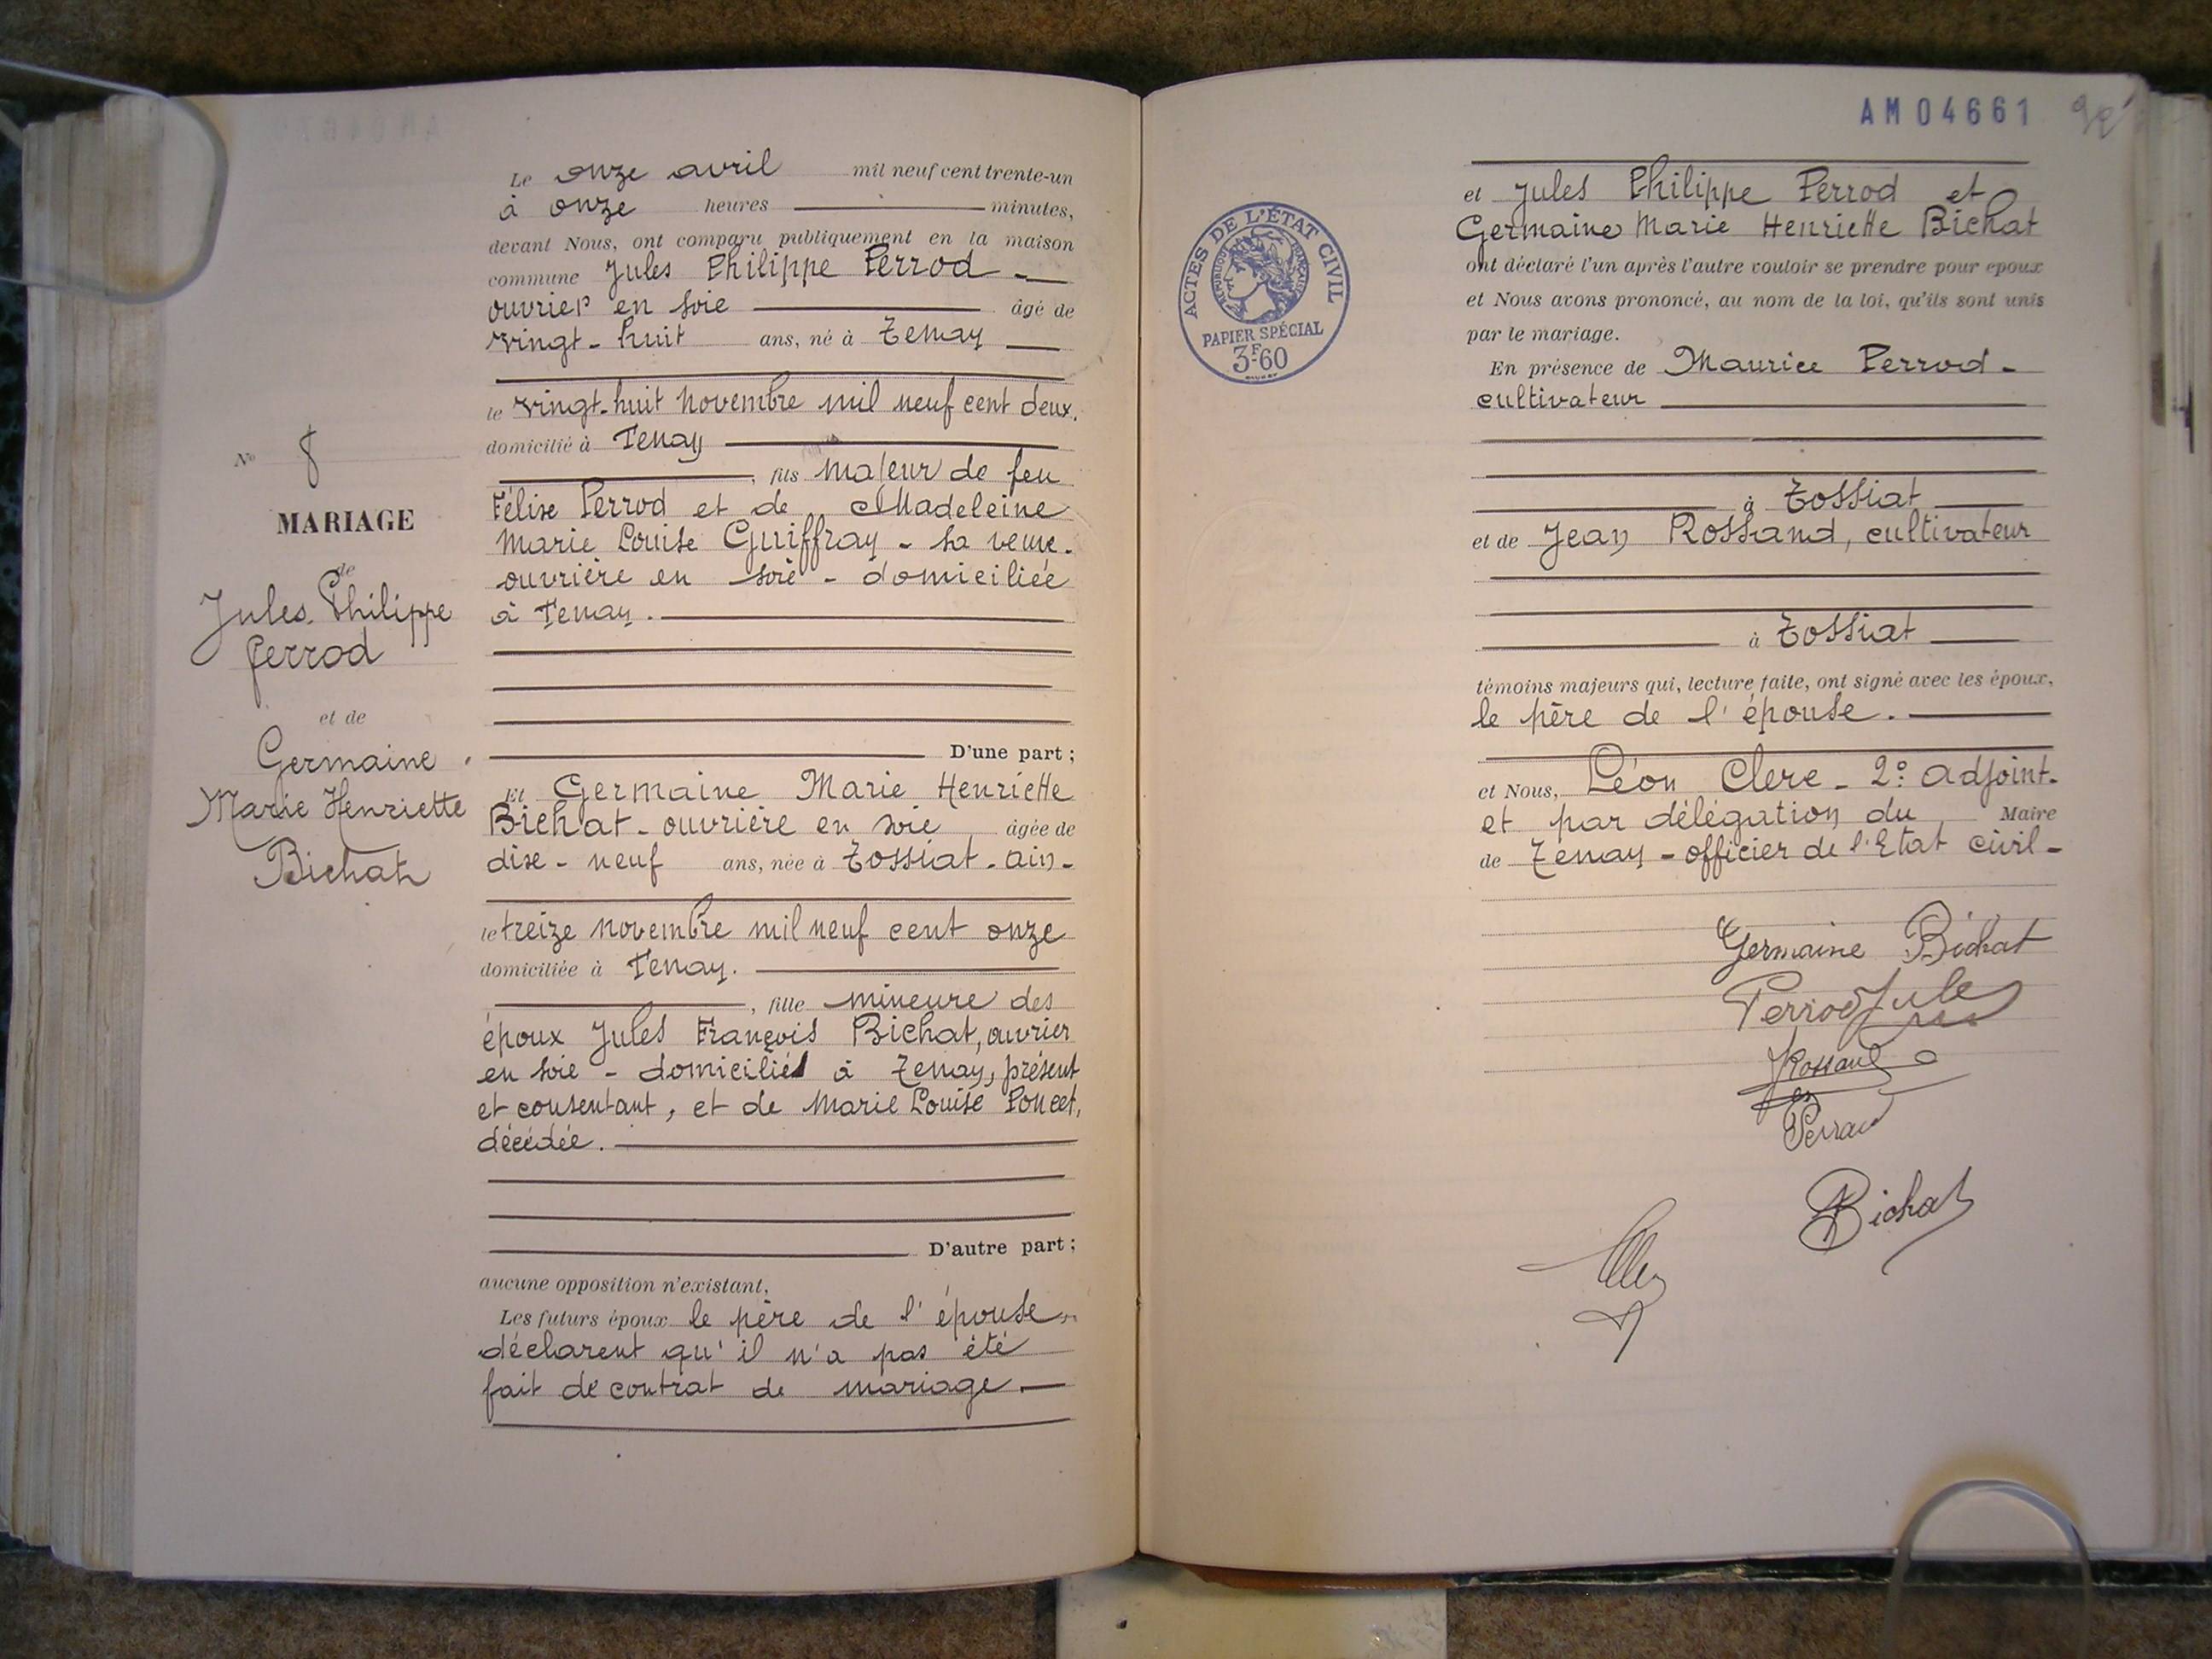 Le onze avril mil neuf cent trente-un
à onze heures minutes,
devant Nous, ont comparu publiquement en la maison
commune Jules Philippe Perrod -
ouvrier en soie âgé de
vingt-huit ans, né à Tenay
le vingt-huit novembre mil neuf cent deux.
domicilié à Tenay
, fils majeur de feu
Félise Perrod et de Madeleine
Marie Louise Guiffray - sa veuve.
ouvrière en soie - domiciliée
à Tenay.
D'une part ;
Et Germaine Marie Henriette
Bichat - ouvrière en soie âgée de
dise-neuf ans, née à Tossiat - ain -
le treize novembre mil neuf cent onze
domiciliée à Tenay.
, fille mineure des
époux Jules François Bichat, ouvrier
en soie - domiciliés à Tenay, présent
et consentant, et de Marie Louise Poncet,
décédée.
D'autre part ;
aucune opposition n'existant,
Les futurs époux le père de l'épouse
déclarent qu'il n'a pas été
fait de contrat de mariage.
N° 8
MARIAGE
de
Jules Philippe
Perrod
et de
Germaine
Marie Henriette
Bichat
AM04661
ACTES DE L'ÉTAT CIVIL
RÉPUBLIQUE FRANÇAISE
PAPIER SPÉCIAL
3F-60
et Jules Philippe Perrod et
Germaine Marie Henriette Bichat
ont déclaré l'un après l'autre vouloir se prendre pour époux
et Nous avons prononcé, au nom de la loi, qu'ils sont unis
par le mariage.
En présence de Maurice Perrod -
cultivateur
à Tossiat
et de Jean Rossand, cultivateur
à Tossiat
témoins majeurs qui, lecture faite, ont signé avec les époux,
le père de l'épouse.
et Nous, Léon Clerc - 2e adjoint -
et par délégation du Maire
de Tenay - officier de l'Etat civil -
Germaine Bichat
Perrod Jules
JRossand
Perrod
Bichat